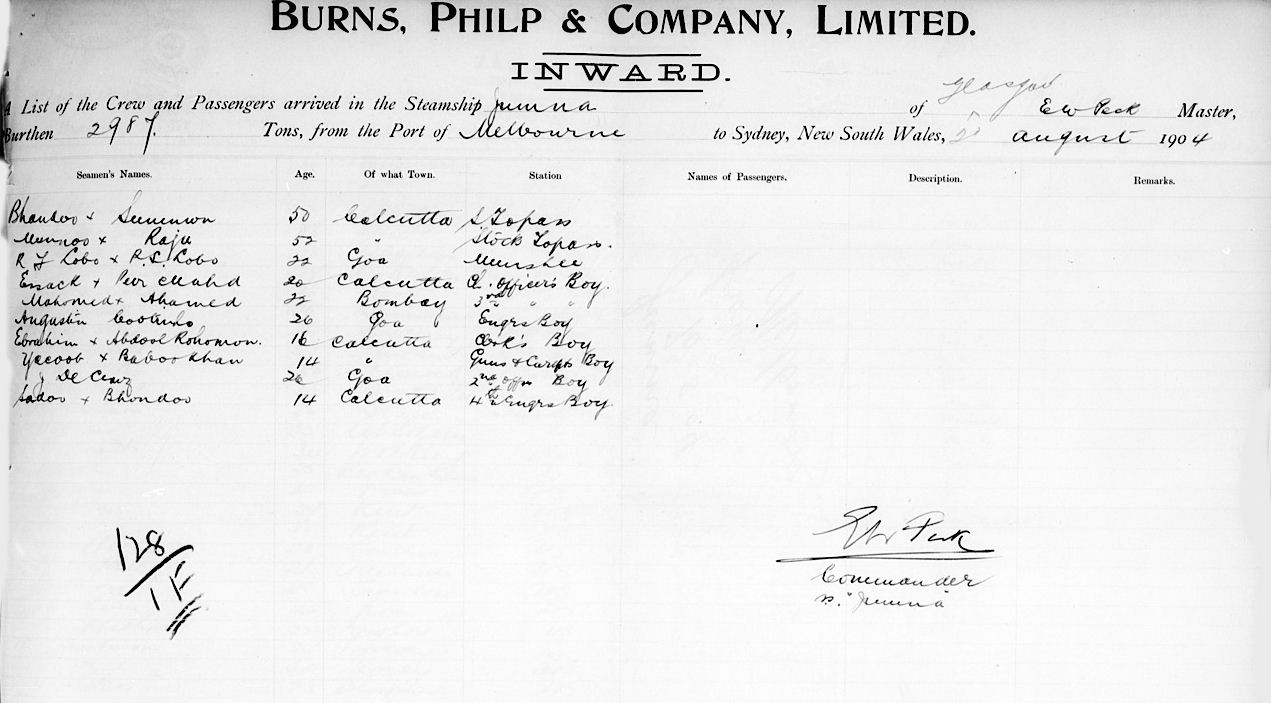 BURNS, PHILP & COMPANY, LIMITED.
INWARD.
A List of the Crew and Passengers arrived in the Steamship Jumna of Glasgow E W Peck Master,
Burthen 2987. Tons, from the Port of Melbourne to Sydney, New South Wales, August 1904
Seamen's Names. Age. Of what Town. Station Names of Passengers. Description. Remarks.
Bhandoo x 50 Calcutta S Topass
x Raju 52 " Stock Topass.
R F Lobo x P.S. Lobo 22 Goa Munshee
Essack x Peer Mahd 20 Calcutta Ch. Officer's Boy.
Mahomed x Ahamed 22 Bombay 3rd " "
Augustin Coutinho 26 Goa Engrs Boy
Ebrahim x Abdool Rohomon. 16 Calcutta Clerk's Boy
Yacoob x Baboo Khan 14 " Guns & Carps Boy
J De Cruz 26 Goa 2nd Offrs Boy
Sadoo x Bhondoo 14 Calcutta 4th Engrs Boy.
128
1 F
E W Peck
Commander
S. "Jumna"